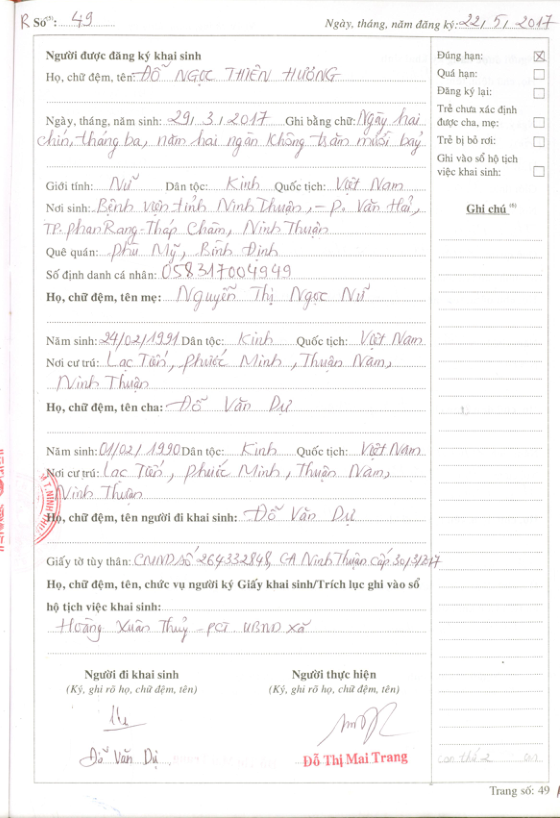 R Số: 49 Ngày, tháng, năm đăng ký: 22/5/2017
Người được đăng ký khai sinh
Họ, chữ đệm, tên: ĐỖ NGỌC THIÊN HƯƠNG
Ngày, tháng, năm sinh: 29/3/2017 Ghi bằng chữ: Ngày hai
chín, tháng ba, năm hai ngàn không trăm mười bảy
Giới tính: Nữ Dân tộc: Kinh Quốc tịch: Việt Nam
Nơi sinh: Bệnh viện tỉnh Ninh Thuận, - P. Văn Hải,
TP. Phan Rang-Tháp Chàm, Ninh Thuận
Quê quán: Phù Mỹ, Bình Định
Số định danh cá nhân: 058317004949
Họ, chữ đệm, tên mẹ: Nguyễn Thị Ngọc Nữ
Năm sinh: 24/02/1991 Dân tộc: Kinh Quốc tịch: Việt Nam
Nơi cư trú: Lạc Tiến, Phước Minh, Thuận Nam,
Ninh Thuận
Họ, chữ đệm, tên cha: Đỗ Văn Dự
Năm sinh: 01/02/1990 Dân tộc: Kinh Quốc tịch: Việt Nam
Nơi cư trú: Lạc Tiến, Phước Minh, Thuận Nam,
Ninh Thuận
Họ, chữ đệm, tên người đi khai sinh: Đỗ Văn Dự
Giấy tờ tùy thân: CMND số 264332848, CA Ninh Thuận cấp 30/3/2017
Họ, chữ đệm, tên, chức vụ người ký Giấy khai sinh/Trích lục ghi vào sổ
hộ tịch việc khai sinh:
Hoàng Xuân Thuỷ - PCT UBND xã
Người đi khai sinh
(Ký, ghi rõ họ, chữ đệm, tên)
Đỗ Văn Dự
Người thực hiện
(Ký, ghi rõ họ, chữ đệm, tên)
Đỗ Thị Mai Trang
Đúng hạn: ☒
Quá hạn: ☐
Đăng ký lại: ☐
Trẻ chưa xác định
được cha, mẹ: ☐
Trẻ bị bỏ rơi: ☐
Ghi vào sổ hộ tịch
việc khai sinh: ☐
Ghi chú (4)
con thứ 2
Trang số: 49